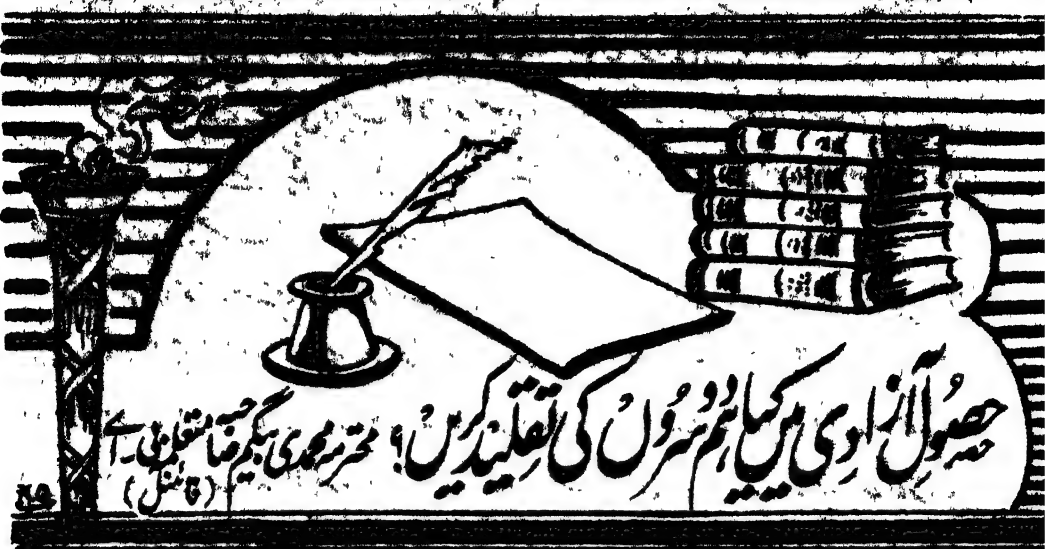 حصولِ آزادی میں کیا ہم دوسروں کی تقلید کریں؟ محترمہ محمدی بیگم صاحبہ متعلم بی۔اے
(فائنل)